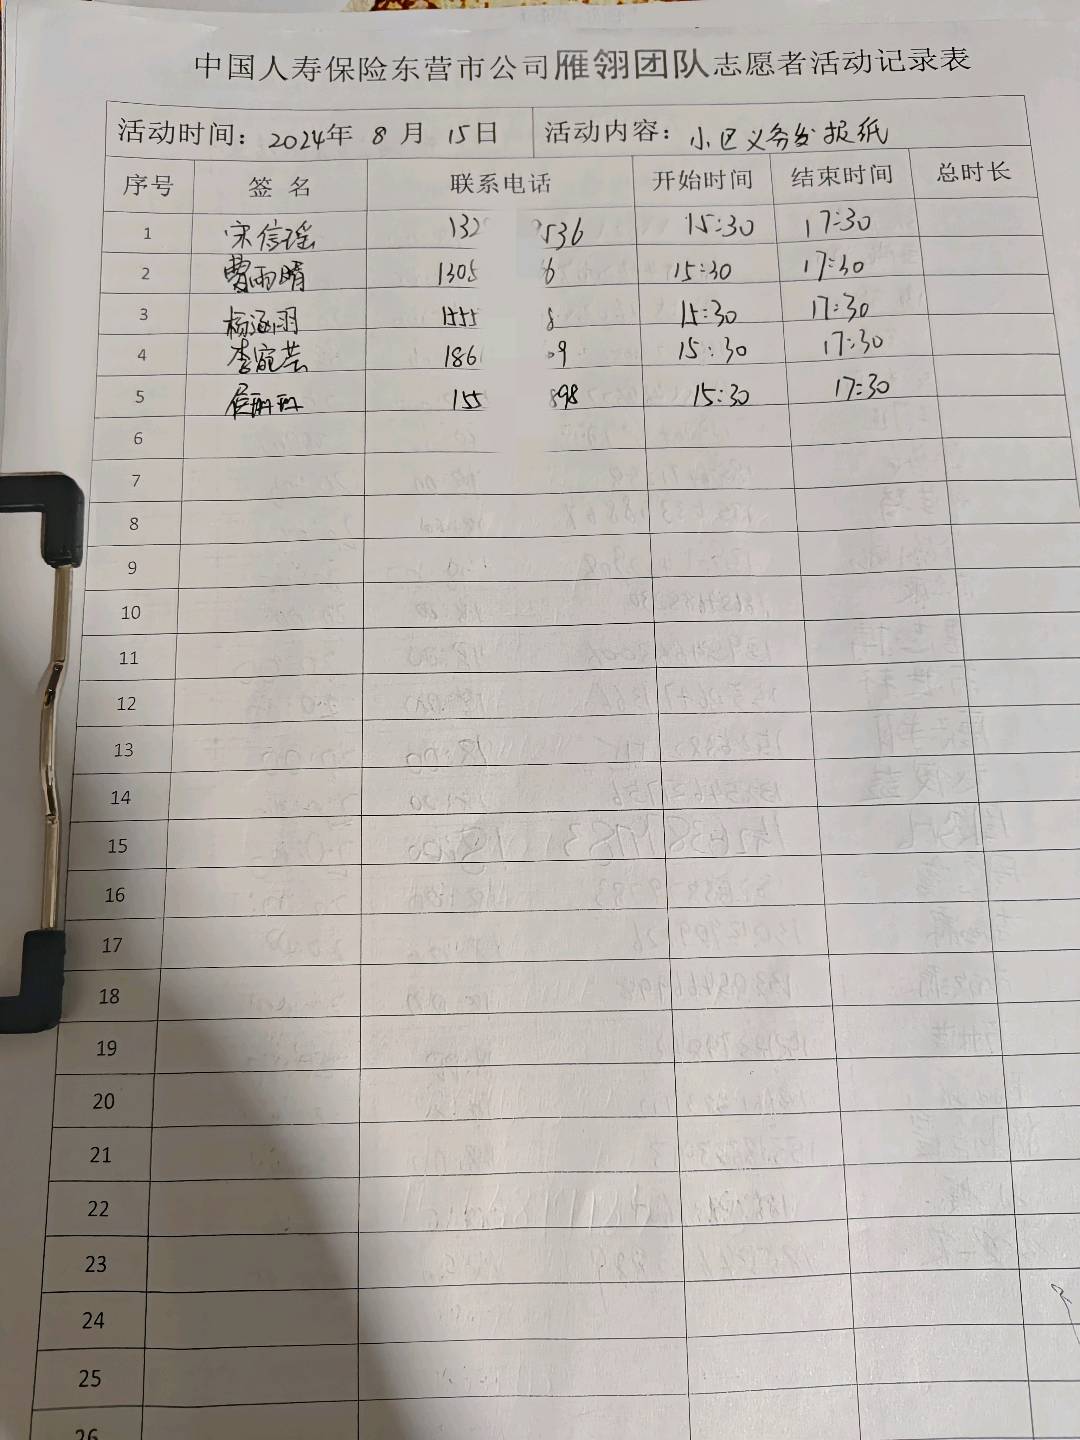 中国人寿保险东营市公司雁翎团队志愿者活动记录表
活动时间：2024年 8 月 15日 活动内容：小区义务发报纸
序号 签 名 联系电话 开始时间 结束时间 总时长
1 宋信瑶 132 536 15:30 17:30
2 曹雨晴 1305 6 15:30 17:30
3 杨涵羽 1555 8 15:30 17:30
4 李 186 09 15:30 17:30
5 155 898 15:30 17:30
6
7
8
9
10
11
12
13
14
15
16
17
18
19
20
21
22
23
24
25
26